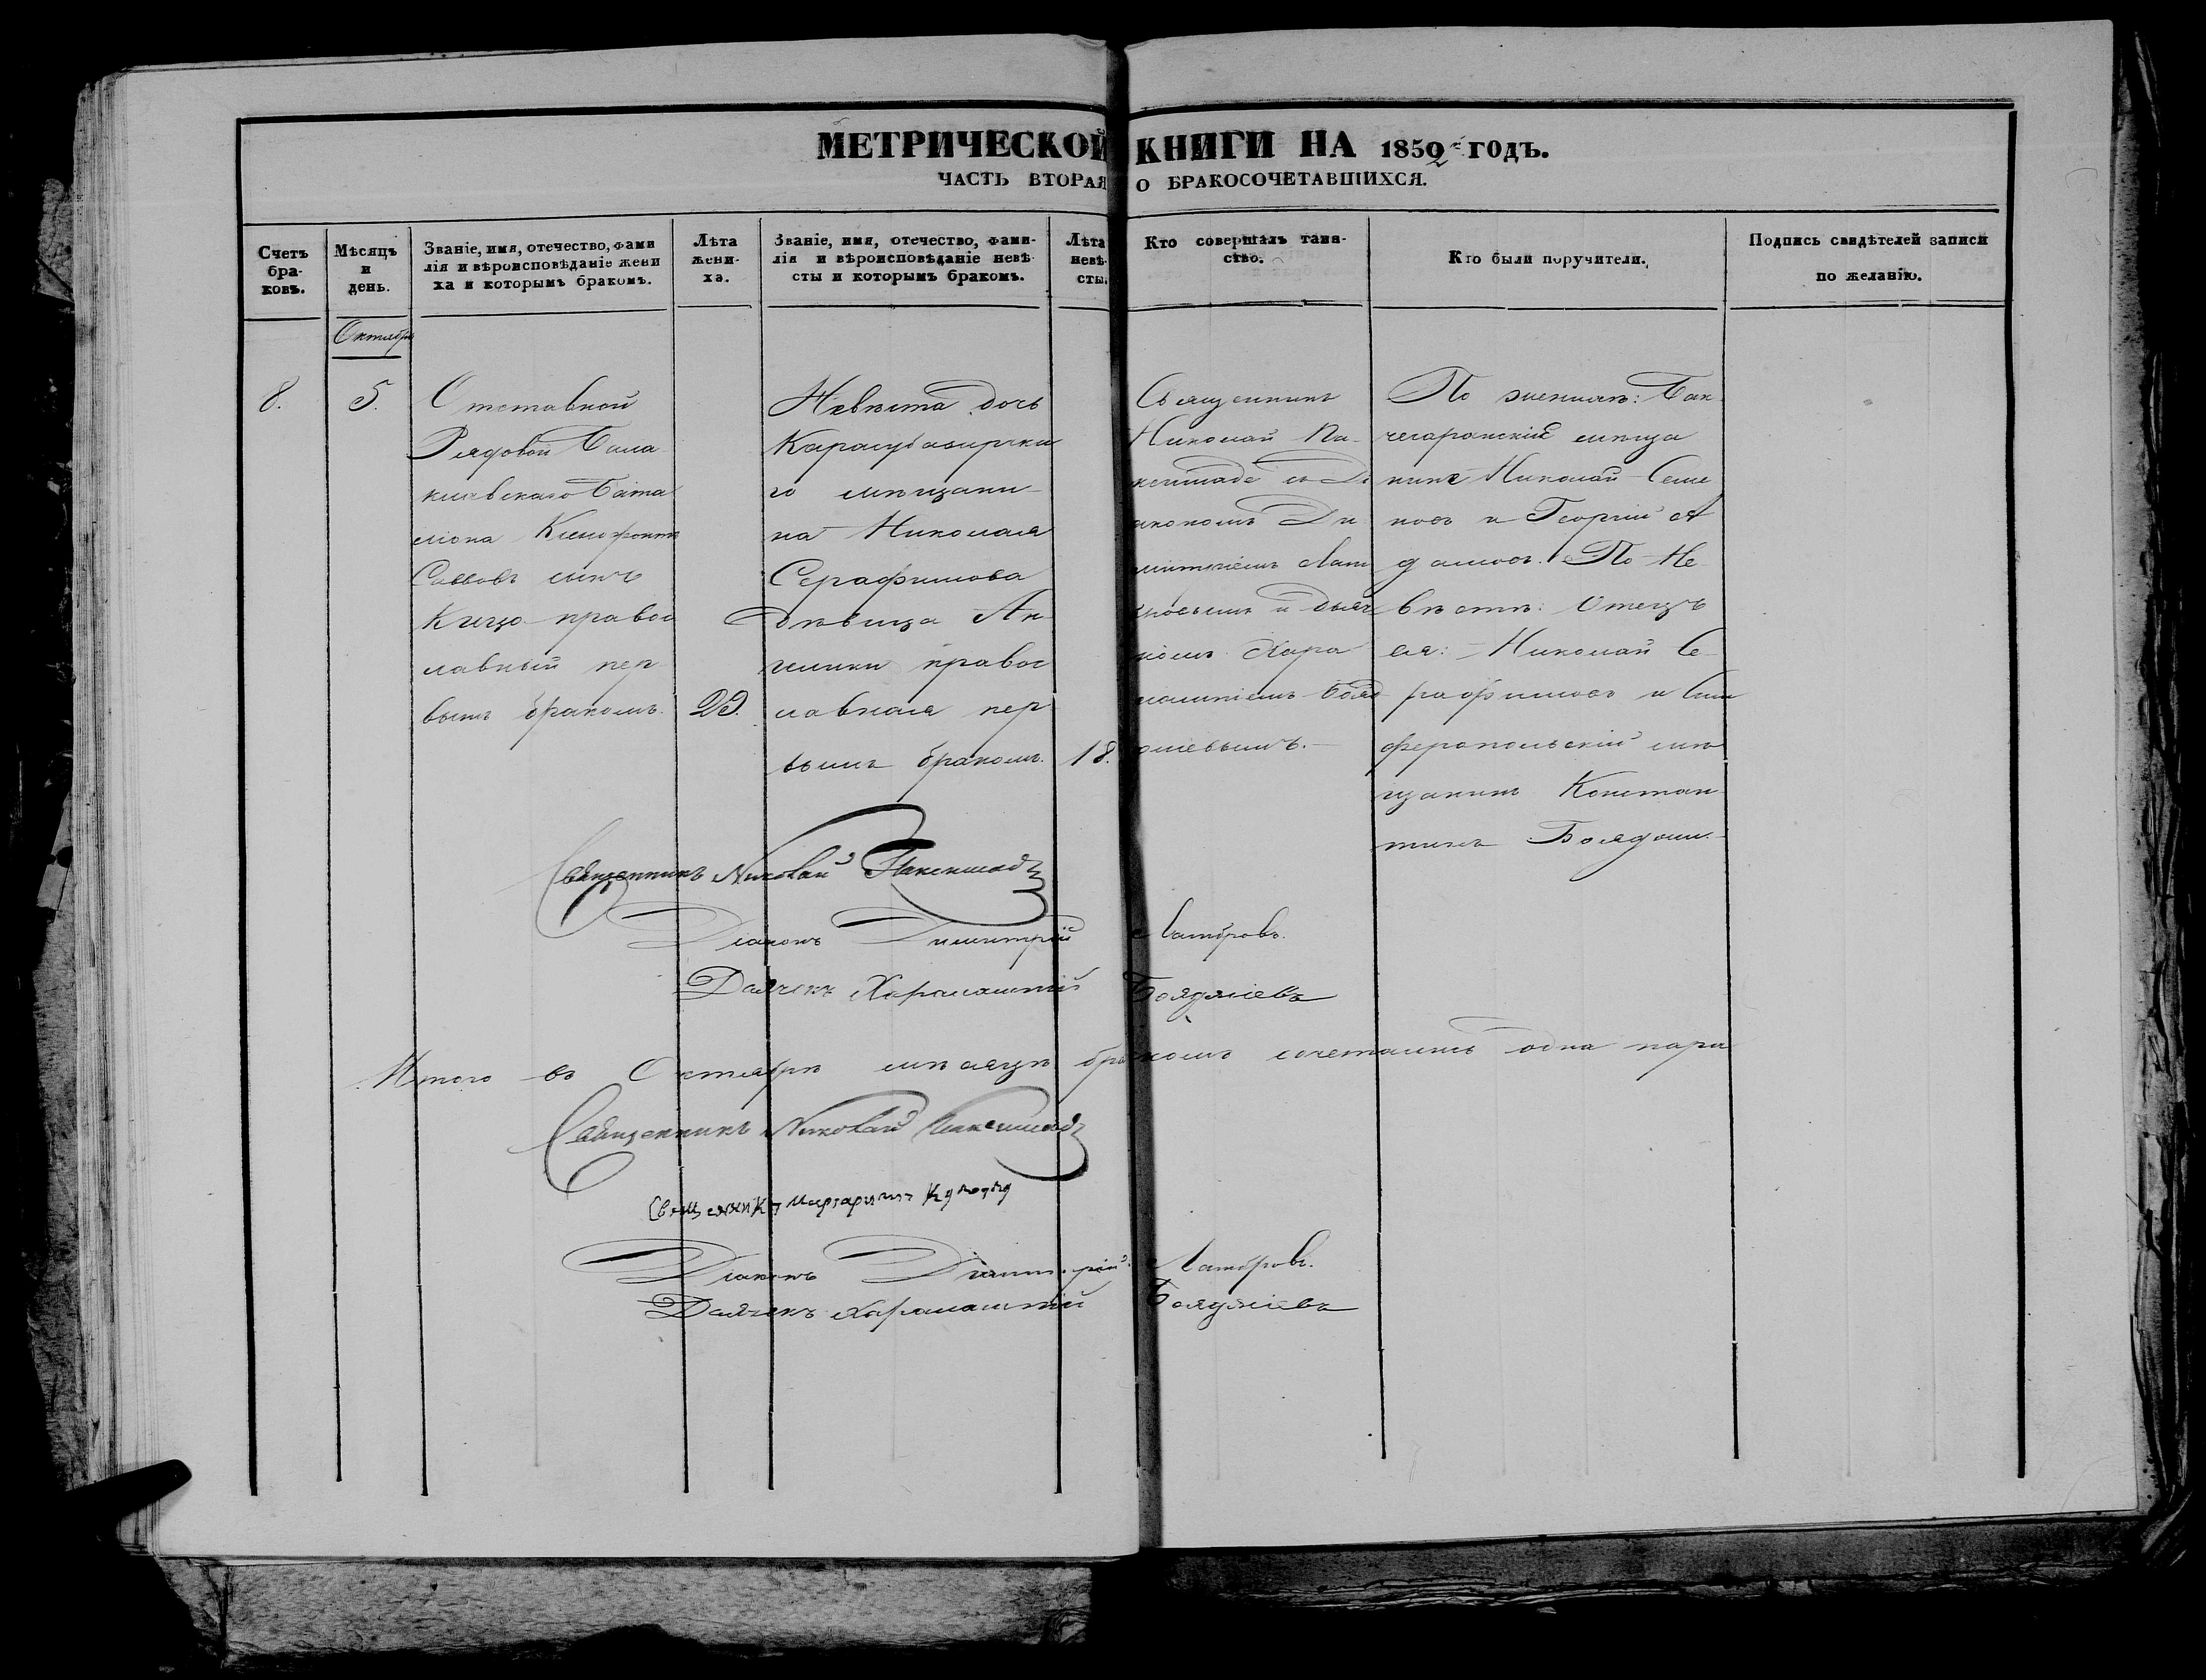 МЕТРИЧЕСКОЙ КНИГИ НА 1852 ГОДЪ.
ЧАСТЬ ВТОРАЯ О БРАКОСОЧЕТАВШИХСЯ.
Счетъ
бра-
ковъ.
Мѣсяцъ
и
день.
Званіе, имя, отечество, фами
лія и вѣроисповѣданіе жени
ха и которымъ бракомъ.
Лѣта
жени-
ха.
Званіе, имя, отечество, фами-
лія и вѣроисповѣданіе невѣ
сты и которымъ бракомъ.
Лѣта
невѣ-
сты.
Кто совершалъ таин-
ство.
Кто были поручители.
Подпись свидѣтелей записи
по желанію.
Октябрь
8.
5.
Отставной
Рядовой Бала
клавскаго Бата
ліона Ксенофонтъ
Саввовъ сынъ
Кицо правос
лавный пер
вымъ бракомъ.
Невѣста дочь
Карасубазарска
го мѣщани-
на Николая
Серафимова
Дѣвица Ан
гелики правос
лавная пер
вымъ бракомъ.
18.
Священникъ
Николай Па-
кемшаде съ Ді
акономъ Ди
митріемъ
и Дьяч
комъ Хара
лампіемъ Бояд
жіевымъ.
По женихѣ: Бах
чесарайскій мѣща
нинъ Николай Семе
новъ и Георгій А
дамовъ. По Не
вѣстѣ: Отецъ
ея: Николай Се
рафимовъ и Сим
феропольскій мѣ
щанинъ Констан
тинъ
Священникъ Николай
Діаконъ Димитрій Ламбровъ.
Дьячекъ Харалампій Бояджіевъ
Итого въ Октябрѣ мѣсяцѣ бракомъ сочетались одна пара
Священникъ Николай
Священникъ
Діаконъ Димитрій Ламбровъ.
Дьячекъ Харалампій Бояджіевъ